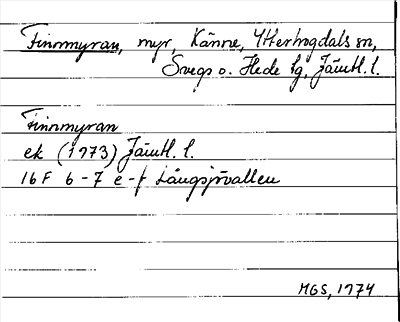 Finnmyran, myr, Känne, Ytterhogdals sn,
Svegs o. Hede tg, Jämtl. l.
Finnmyran
ek (1973) Jämtl. l.
16 F 6-7 e-f Långsjövallen
MGS, 1974